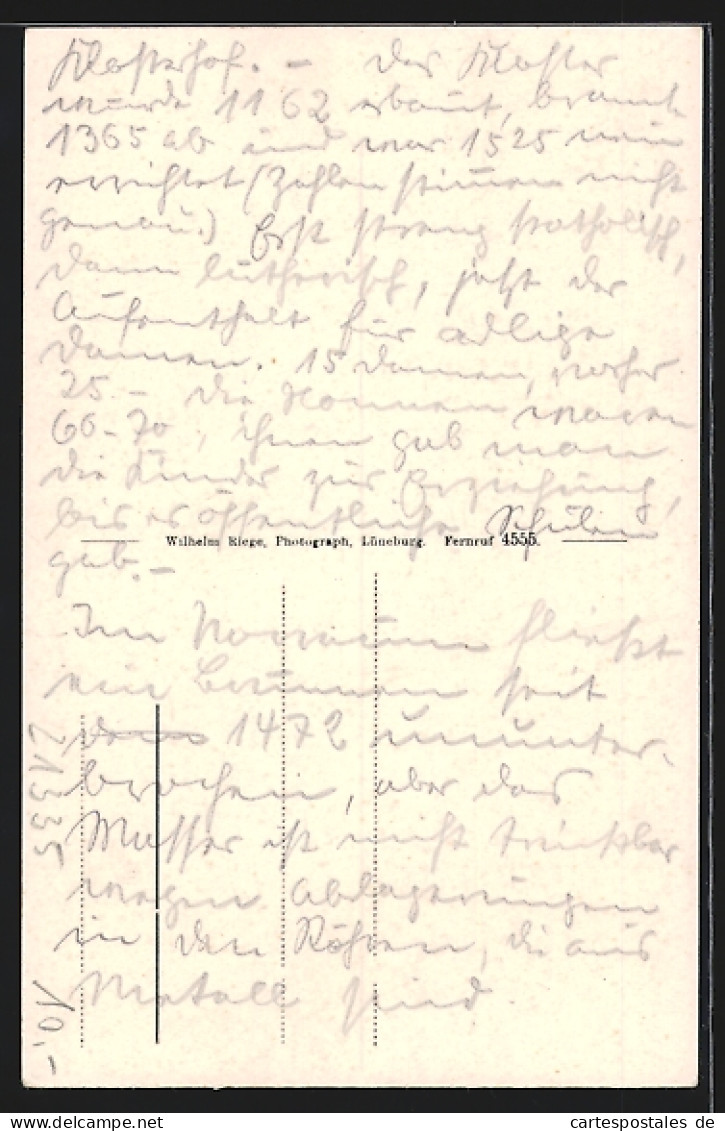 Klosterhof. – Das Kloster
wurde 1162 erbaut, brannte
1365 ab und war 1525 neu
errichtet (Zahlen stimmen nicht
genau.) Erst streng katholisch,
dann lutherisch, jetzt der
Aufenthalt für adlige
Damen. 15 Damen, vorher
25 – die Nonnen waren
60-70, ihnen gab man
die Kinder zur Erziehung,
bis es öffentliche Schulen
Wilhelm Riege, Photograph, Lüneburg. Fernruf 4555.
gab. –
Im Vorraum fließt
ein Brunnen seit
1472 ununter-
brochen, aber das
Wasser ist nicht trinkbar
wegen Ablagerungen
in den Röhren, die aus
Metall sind
21335
10,-
cartespostales de